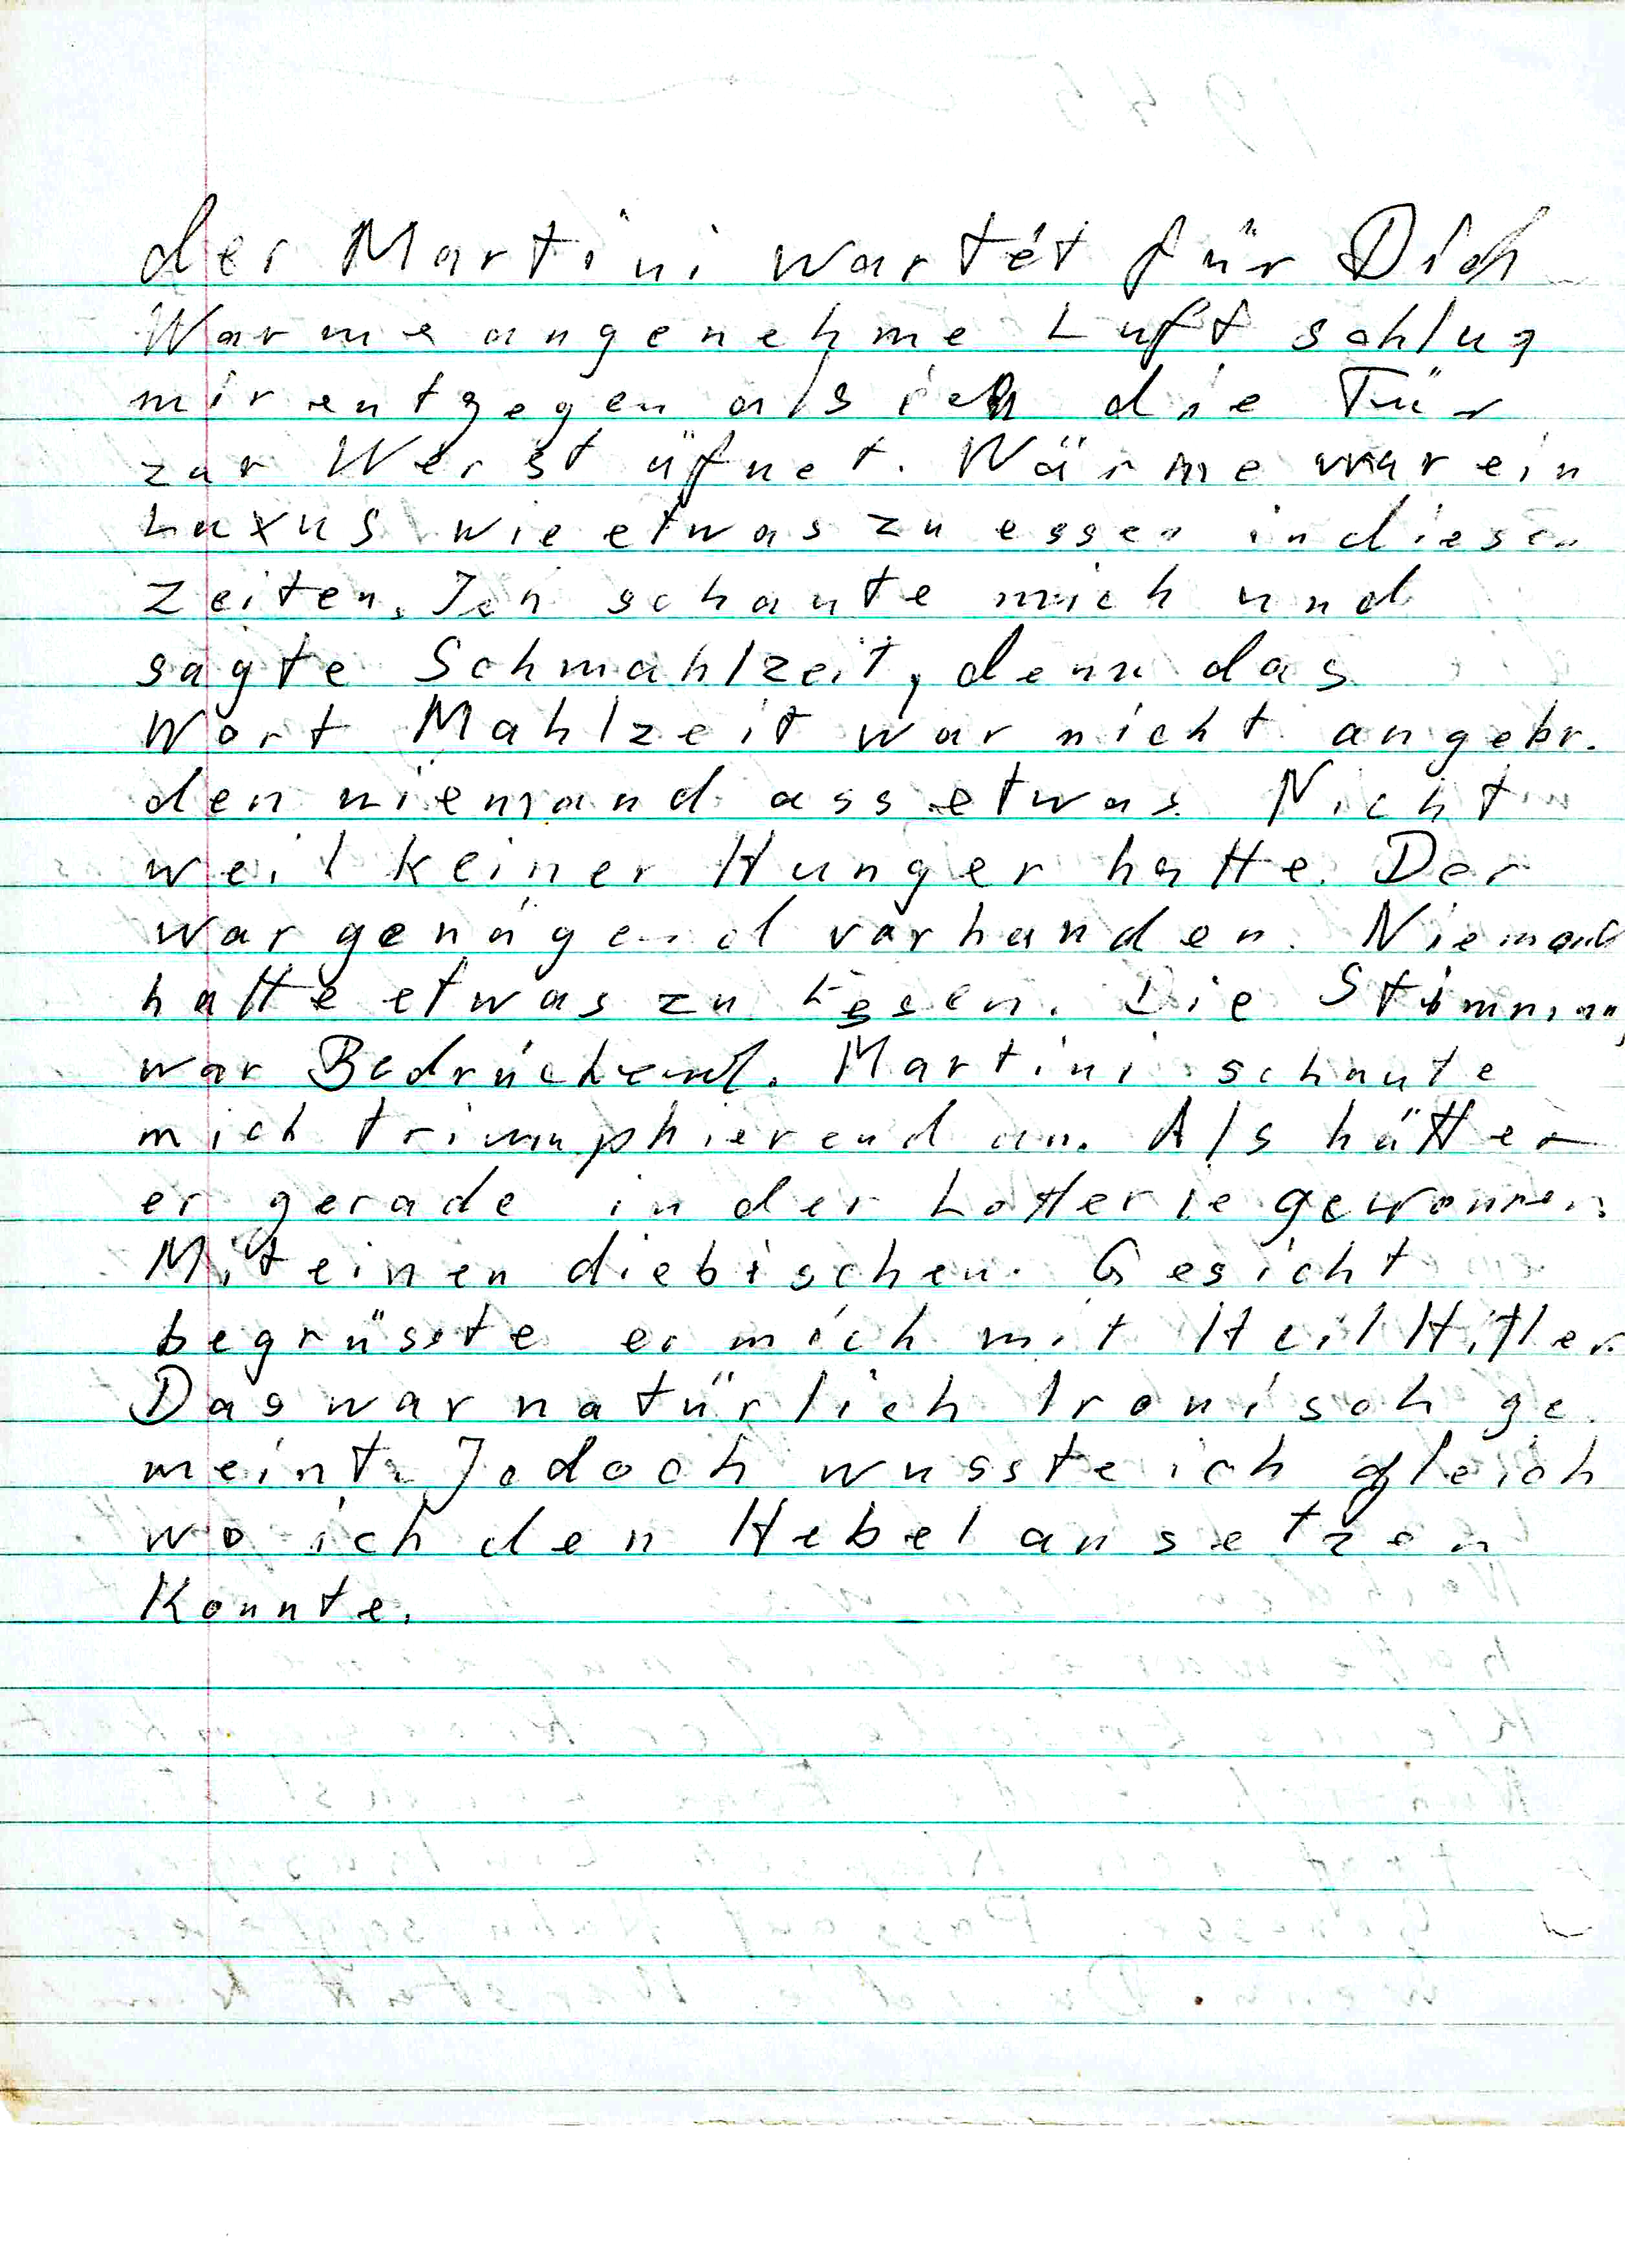 der Martini wartet für Dich
Warme angenehme Luft schlug
mir entgegen als ich die Tür
zur Werst üfnet. Wärme war ein
Luxus wie etwas zu essen in diesen
Zeiten. Ich schaute mich und
sagte Schmahlzeit, denn das
Wort Mahlzeit war nicht angebr.
den niemand ass etwas. Nicht
weil keiner Hunger hatte. Der
war genügend vorhanden. Niemand
hatte etwas zu Essen. Die Stimmung
war Bedrückend. Martini schaute
mich triumphierend an. Als hätte
er gerade in der Lotterie gewonnen.
Mit einen diebischen Gesicht
begrüsste er mich mit Heil Hitler.
Das war natürlich Ironisch ge.
meint. Jedoch wusste ich gleich
wo ich den Hebel ansetzen
Konnte.